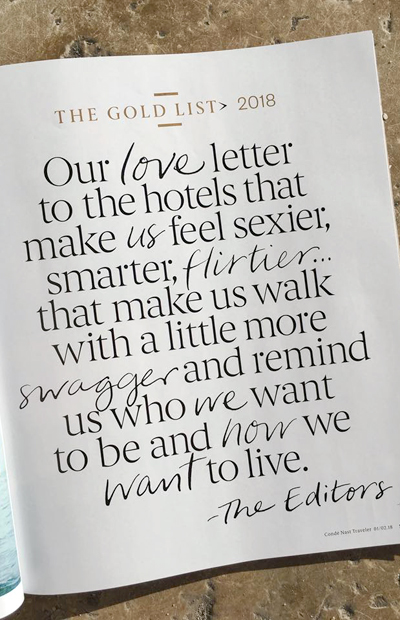 THE GOLD LIST> 2018
Our love letter
to the hotels that
make us feel sexier,
smarter, flirtier...
that make us walk
with a little more
swagger and remind
us who we want
to be and how we
want to live.
-The Editors
Condé Nast Traveler 01/02.18